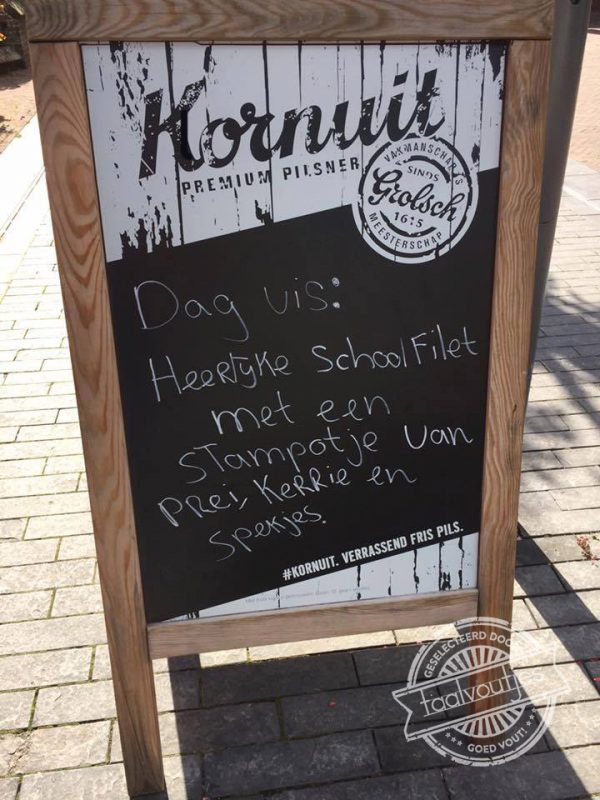 Kornuit
PREMIUM PILSNER
VAKMANSCHAP IS
SINDS
Grolsch
1615
MEESTERSCHAP
Dag vis:
HEERlyke SchoolFilet
met een
STampotje van
PRei, KeRRie en
spekjes.
#KORNUIT. VERRASSEND FRIS PILS.
GESELECTEERD DOOR
taalvoutjes
GOED VOUT!